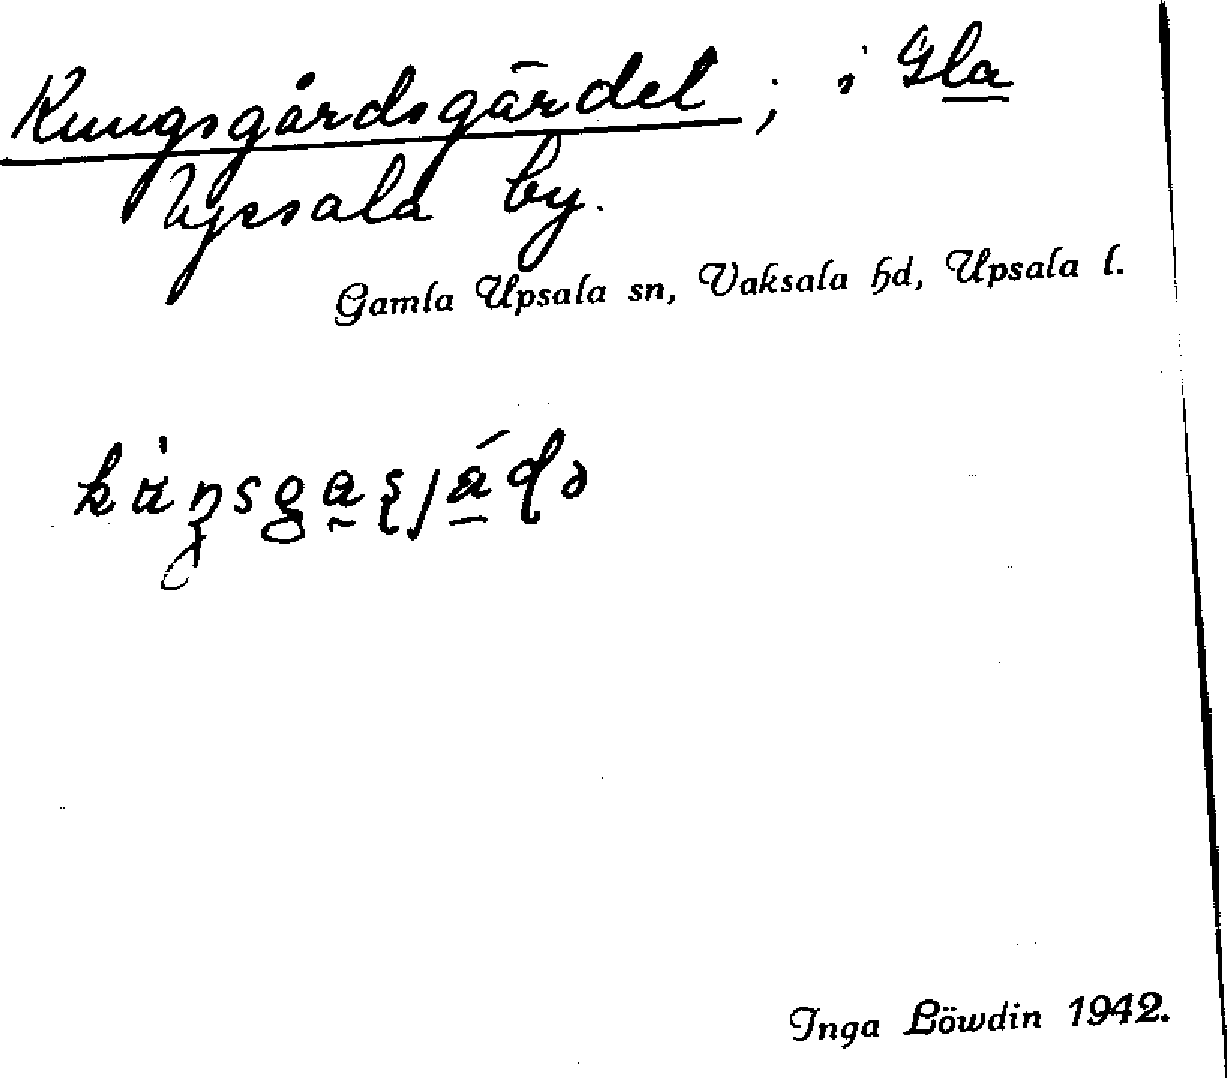 Kungsgårdsgärdet; i Gla
Upsala by.
Gamla Upsala sn, Vaksala hd, Upsala l.
Inga Löwdin 1942.